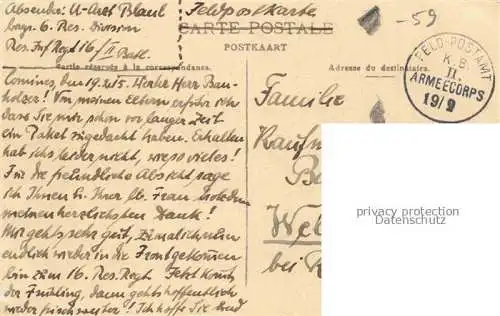 Absender: U-Arzt Blaul
bayr. 6. Res. Division
Res. Inf. Regt 16 / II Batl.
Feldpostkarte
CARTE POSTALE
POSTKAART
-59
Partie réservée à la correspondance.
Adresse du destinataire.
FELD-POSTAMT
K.B.
II.
ARMEECORPS
19/2
Comines, den 19.2.15. Lieber Herr Bau-
holzer! Von meinen Eltern erfuhr ich
dass Sie mir schon vor langer Zeit
ein Paket zugedacht haben. Erhalten
hab ichs leider nicht, wie so vieles!
Für die freundliche Absicht sage
ich Ihnen u. Ihrer lb. Frau trotzdem
meinen herzlichsten Dank!
Mir gehts sehr gut, ziemlich
endlich wieder in die Front gekommen
bin zum 16. Res. Regt. Jetzt kommt
der Frühling, dann gehts hoffentlich
wieder frisch weiter! Ich hoffe Sie und
Familie
bei
privacy protection